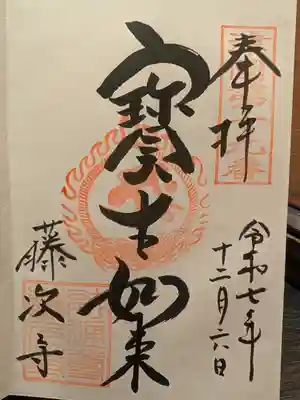 奉拝
令和七年
十二月六日
寶生如来
藤次寺